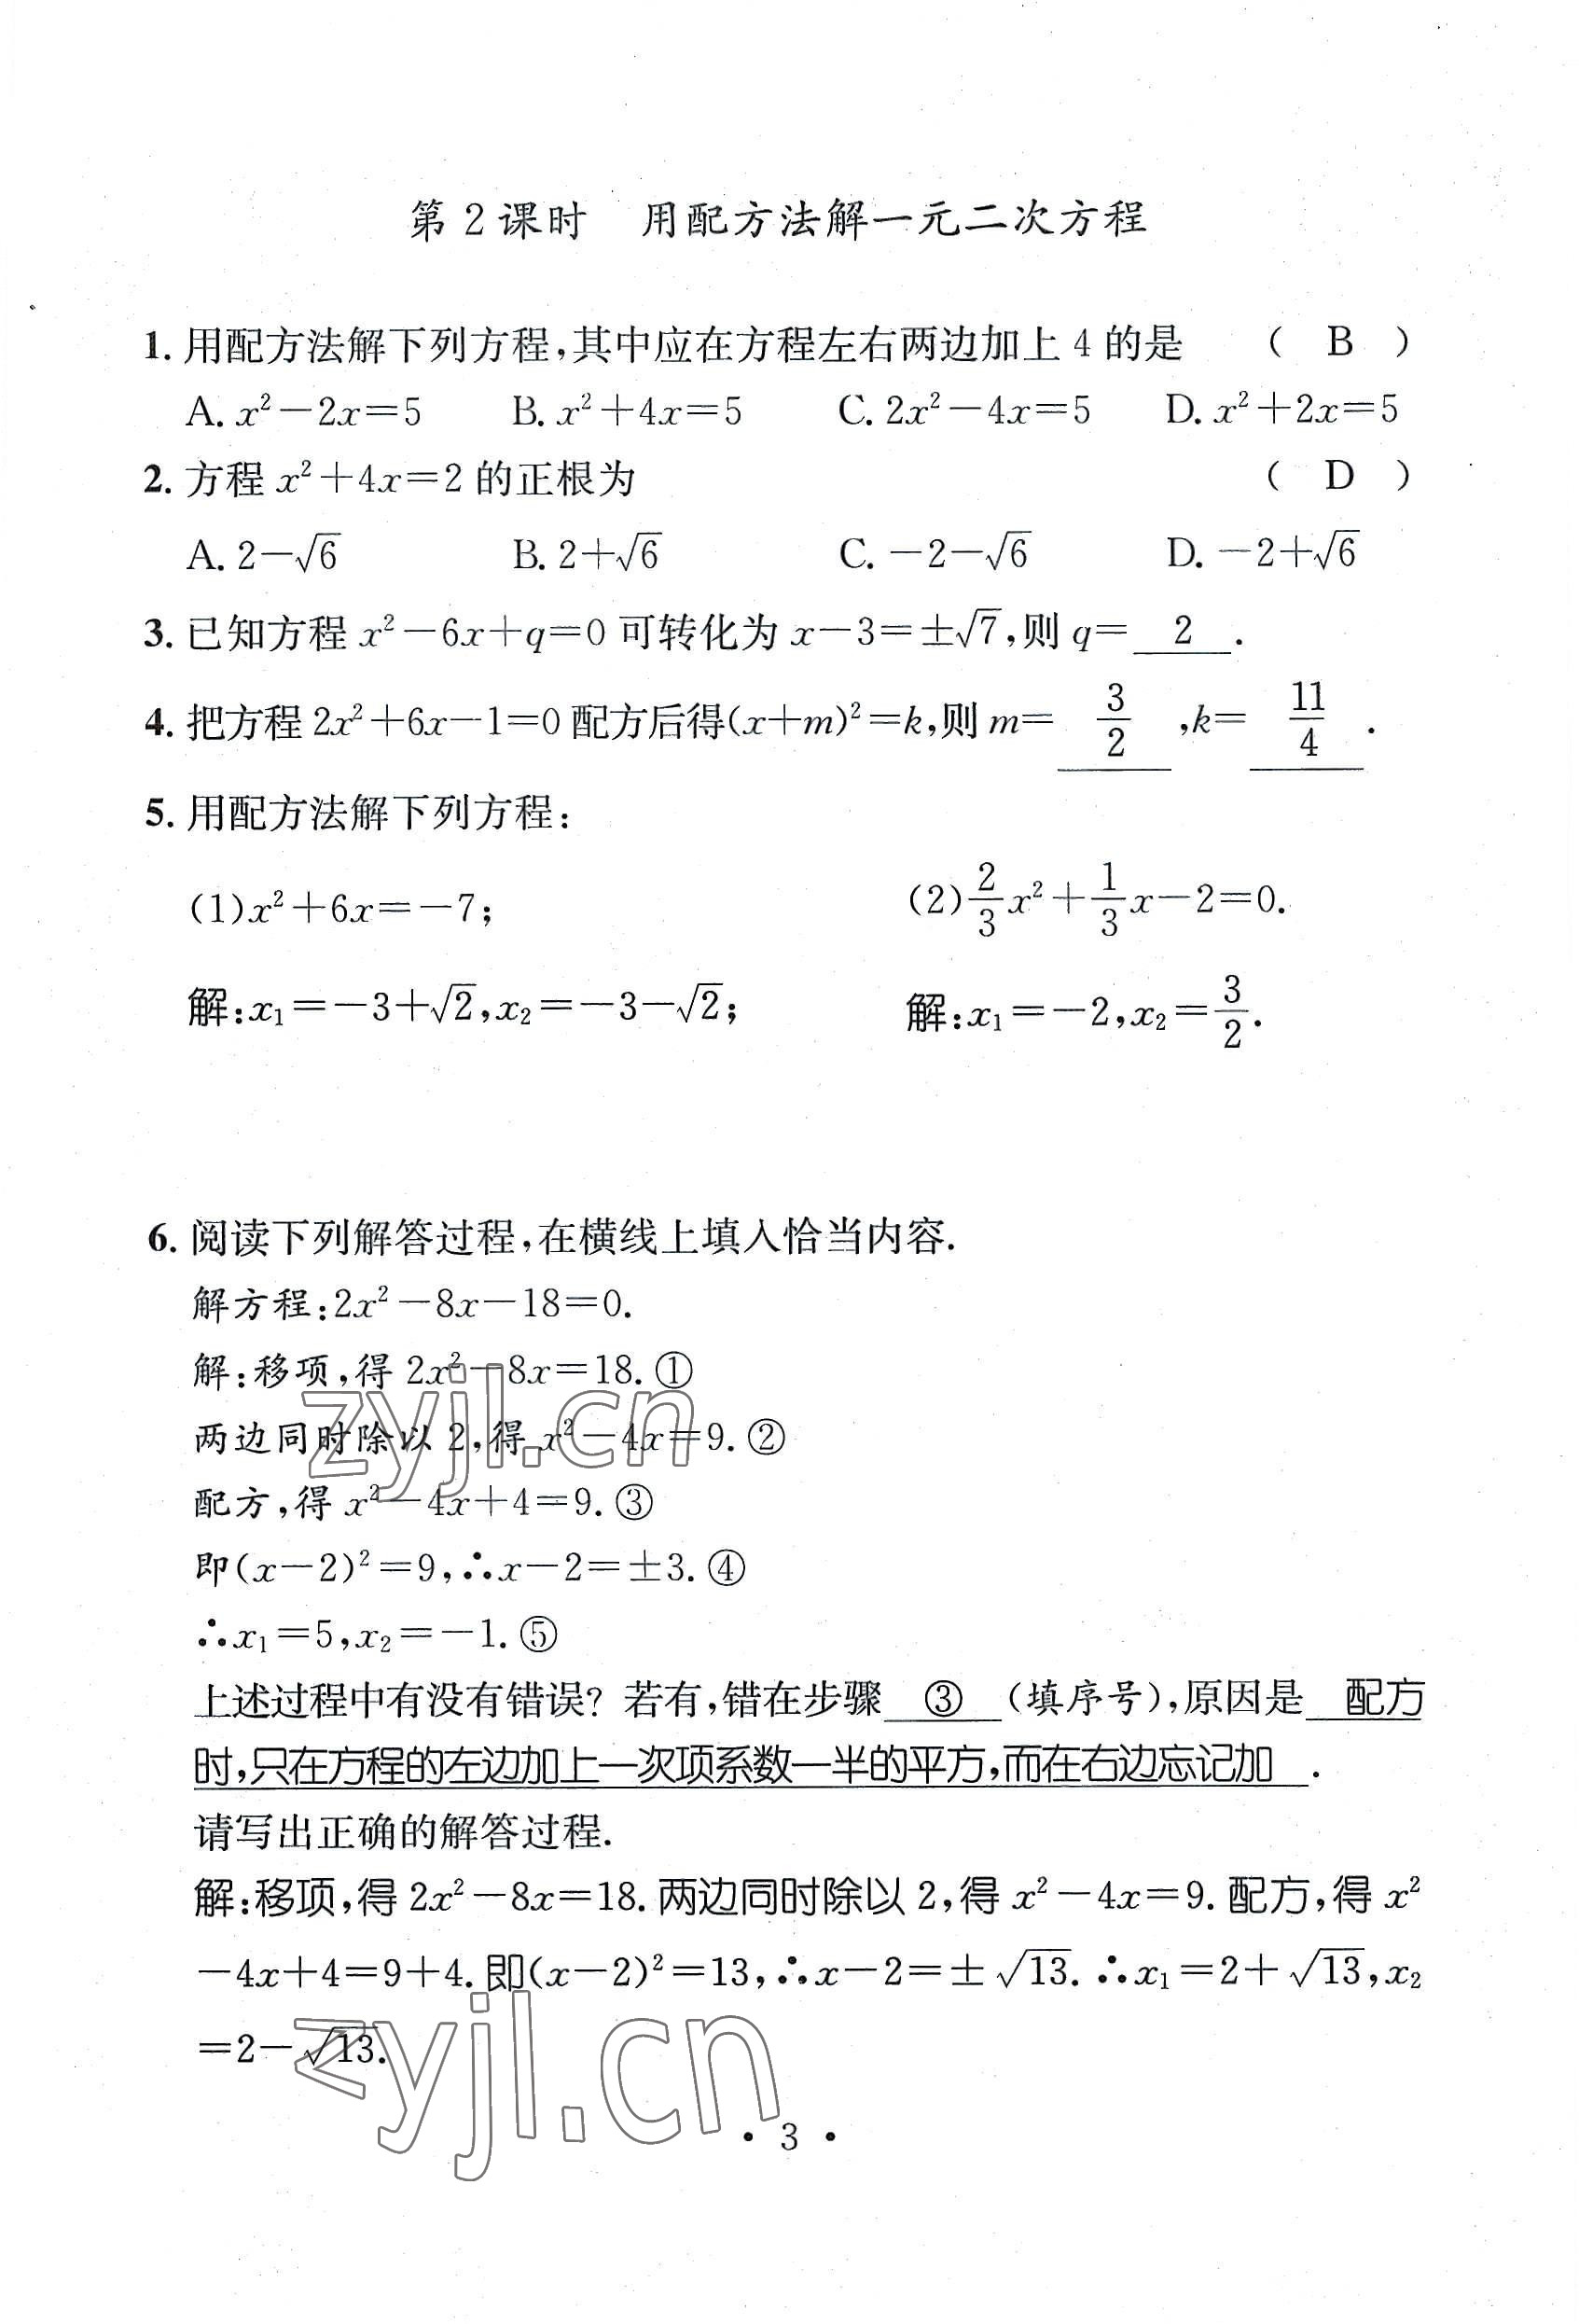 第2课时　用配方法解一元二次方程
1. 用配方法解下列方程,其中应在方程左右两边加上 4 的是 ( B )
A. x²－2x＝5 B. x²＋4x＝5 C. 2x²－4x＝5 D. x²＋2x＝5
2. 方程 x²＋4x＝2 的正根为 ( D )
A. 2－√6 B. 2＋√6 C. －2－√6 D. －2＋√6
3. 已知方程 x²－6x＋q＝0 可转化为 x－3＝±√7,则 q＝ 2 .
4. 把方程 2x²＋6x－1＝0 配方后得(x＋m)²＝k,则 m＝ 3/2 ,k＝ 11/4 .
5. 用配方法解下列方程:
(1)x²＋6x＝－7; (2)2/3x²＋1/3x－2＝0.
解:x₁＝－3＋√2,x₂＝－3－√2; 解:x₁＝－2,x₂＝3/2.
6. 阅读下列解答过程,在横线上填入恰当内容.
解方程:2x²－8x－18＝0.
解:移项,得 2x²－8x＝18. ①
两边同时除以 2,得 x²－4x＝9. ②
配方,得 x²－4x＋4＝9. ③
即(x－2)²＝9,∴x－2＝±3. ④
∴x₁＝5,x₂＝－1. ⑤
上述过程中有没有错误? 若有,错在步骤 ③ (填序号),原因是 配方
时,只在方程的左边加上一次项系数一半的平方,而在右边忘记加 .
请写出正确的解答过程.
解:移项,得 2x²－8x＝18. 两边同时除以 2,得 x²－4x＝9. 配方,得 x²
－4x＋4＝9＋4. 即(x－2)²＝13,∴x－2＝±√13. ∴x₁＝2＋√13,x₂
＝2－√13.
• 3 •
zyjl.cn
zyjl.cn